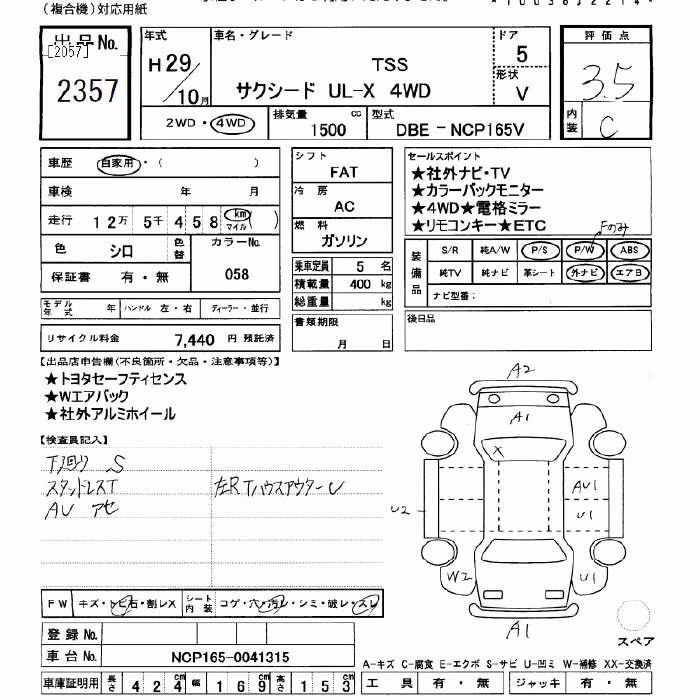 (複合機)対応用紙
出品No.
[2057]
2357
年式
H29/10月
車名・グレード
TSS
サクシード UL-X 4WD
ドア
5
形状
V
評価点
3.5
内装
C
2WD・4WD
排気量 cc
1500
型式
DBE-NCP165V
車歴 自家用・( )
車検 年 月
走行 12万5千458 km マイル
色 シロ 色替 カラーNo. 058
保証書 有・無
シフト
FAT
冷房
AC
燃料
ガソリン
乗車定員 5 名
積載量 400 kg
総重量 kg
セールスポイント
★社外ナビ・TV
★カラーバックモニター
★4WD★電格ミラー
★リモコンキー★ETC
Fのみ
装備品
S/R 純A/W P/S P/W ABS
純TV 純ナビ 革シート 外ナビ エアB
ナビ型番:
モデル年式 年 ハンドル 左・右 ディーラー・並行
リサイクル料金 7,440 円 預託済
書類期限
月 日
後日品
【出品店申告欄(不良箇所・欠品・注意事項等)】
★トヨタセーフティセンス
★Wエアバック
★社外アルミホイール
【検査員記入】
T廻り S
スタッドレスT 左RTハウスアウターU
AU アセ
A2
A1
X
AU1
U2
U1
W2
U1
A1
スペア
FW キズ・トビ石・割レX シート内装 コゲ・穴・汚レ・シミ・破レ・スレ
登録No.
車台No. NCP165-0041315
車庫証明用 長さ 424 cm 幅 169 cm 高さ 153 cm
A-キズ C-腐食 E-エクボ S-サビ U-凹ミ W-補修 XX-交換済
工具 有・無 ジャッキ 有・無